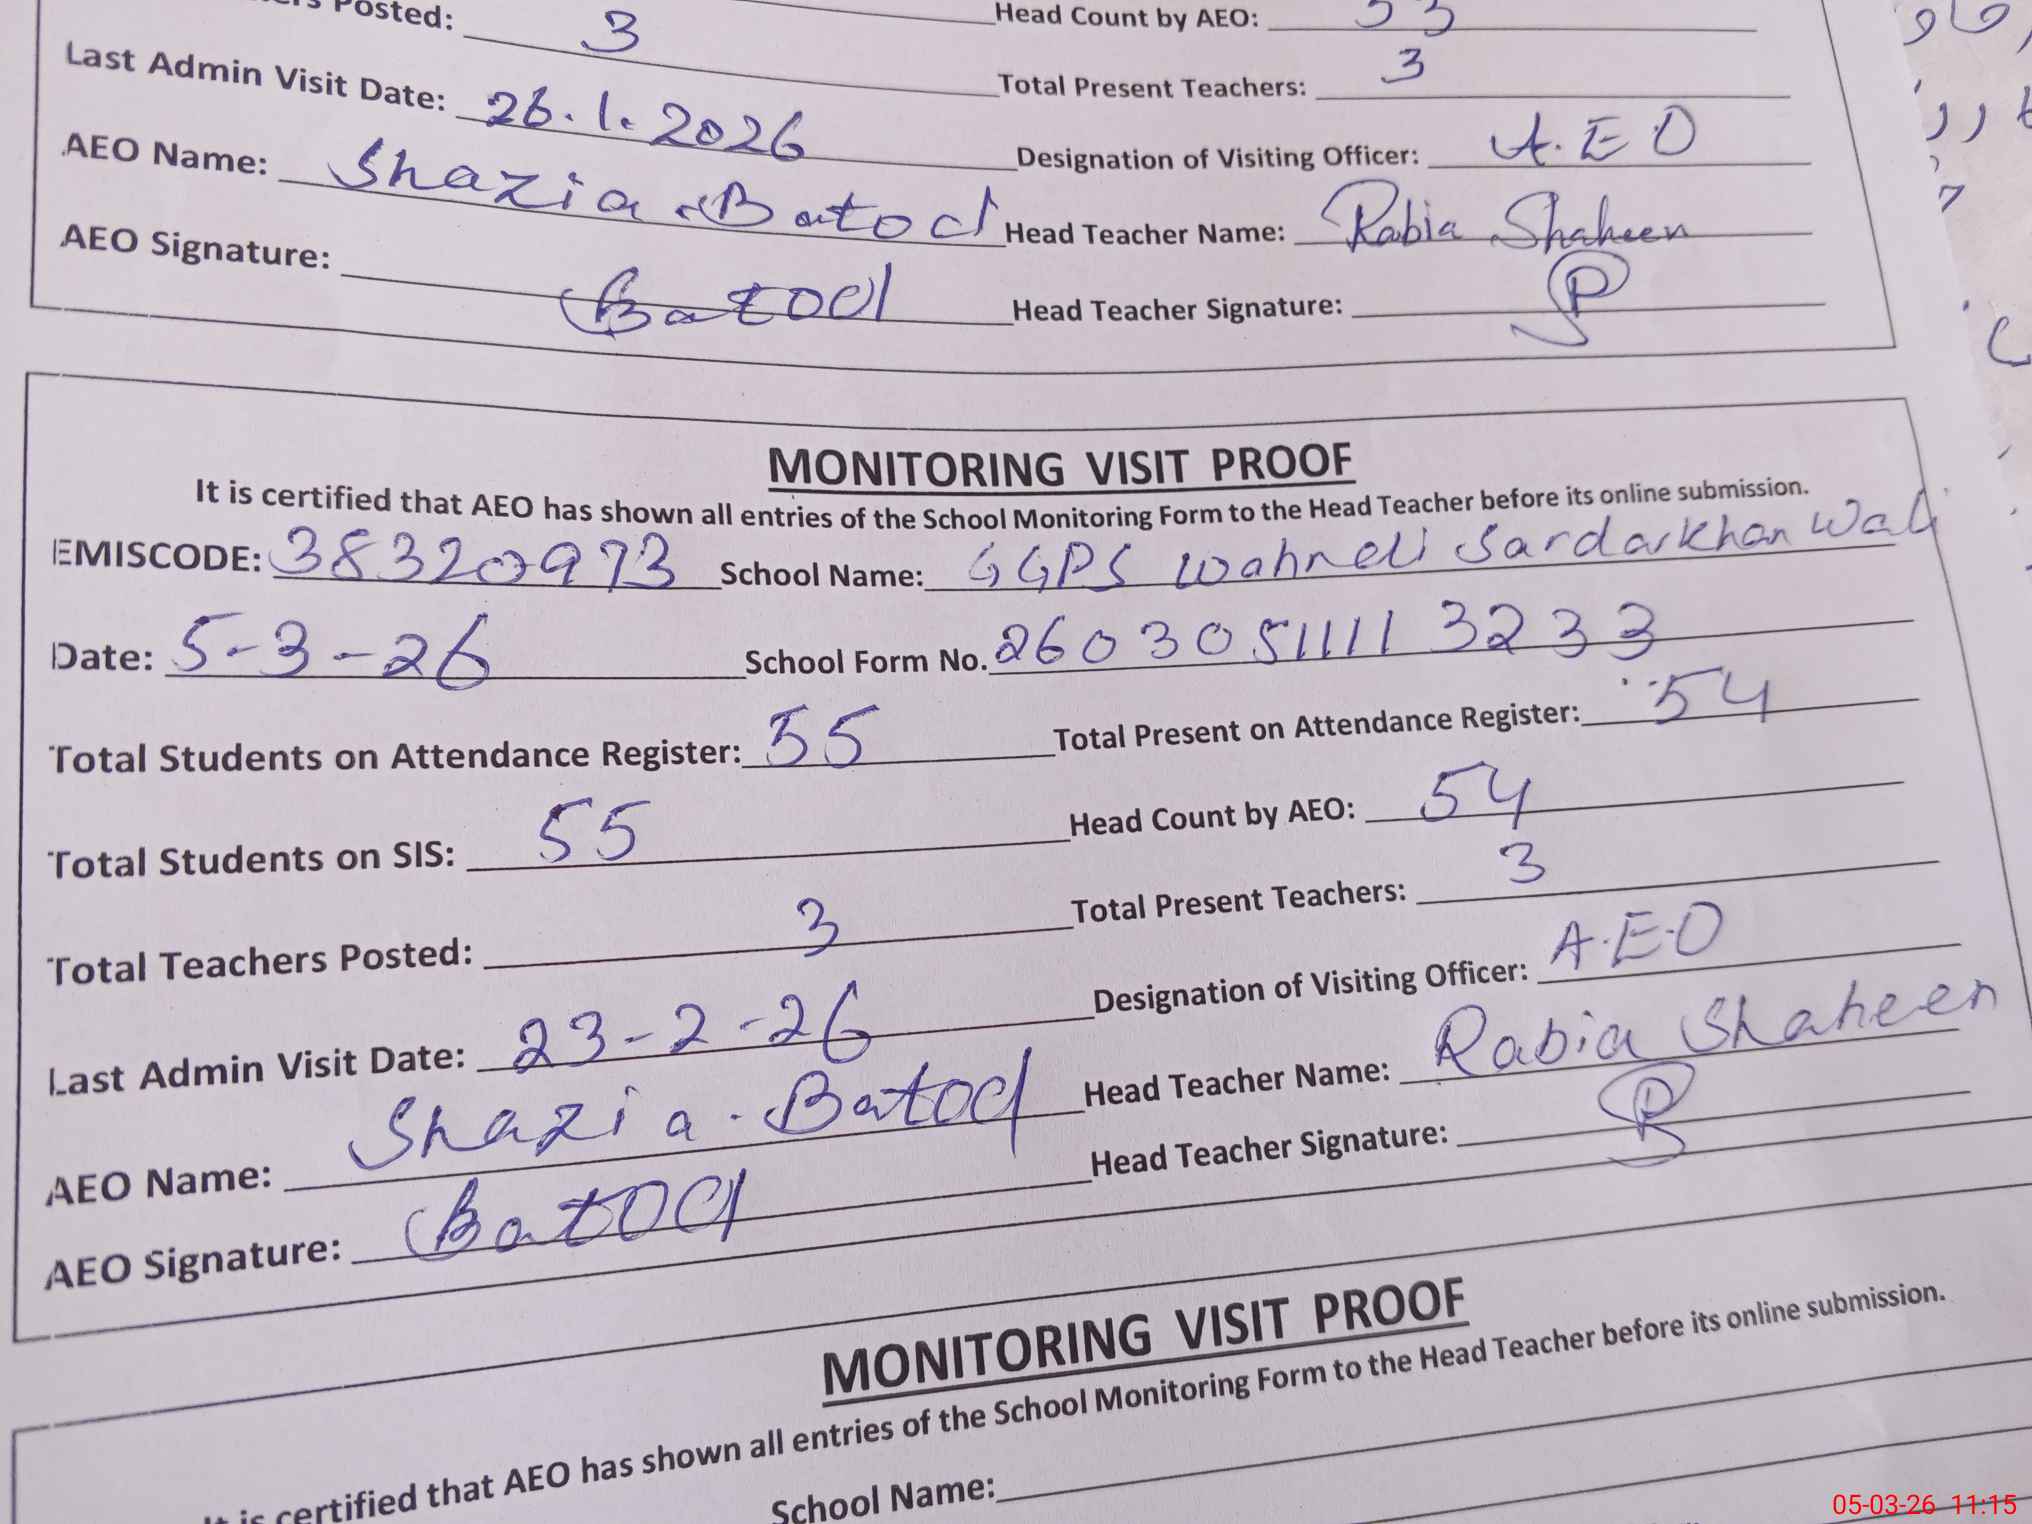 Posted: 3 Head Count by AEO: 53
Last Admin Visit Date: 26.1.2026 Total Present Teachers: 3
AEO Name: Shazia Batool Designation of Visiting Officer: A.E.O
AEO Signature: Batool Head Teacher Name: Rabia Shaheen
Head Teacher Signature:
MONITORING VISIT PROOF
It is certified that AEO has shown all entries of the School Monitoring Form to the Head Teacher before its online submission.
EMISCODE: 38320973 School Name: GGPS Wahndi Sardarkhan Wali
Date: 5-3-26 School Form No. 26030511113233
Total Students on Attendance Register: 55 Total Present on Attendance Register: 54
Total Students on SIS: 55 Head Count by AEO: 54
Total Teachers Posted: 3 Total Present Teachers: 3
Last Admin Visit Date: 23-2-26 Designation of Visiting Officer: A.E.O
AEO Name: Shazia. Batool Head Teacher Name: Rabia Shaheen
AEO Signature: Batool Head Teacher Signature:
MONITORING VISIT PROOF
It is certified that AEO has shown all entries of the School Monitoring Form to the Head Teacher before its online submission.
School Name:
05-03-26 11:15